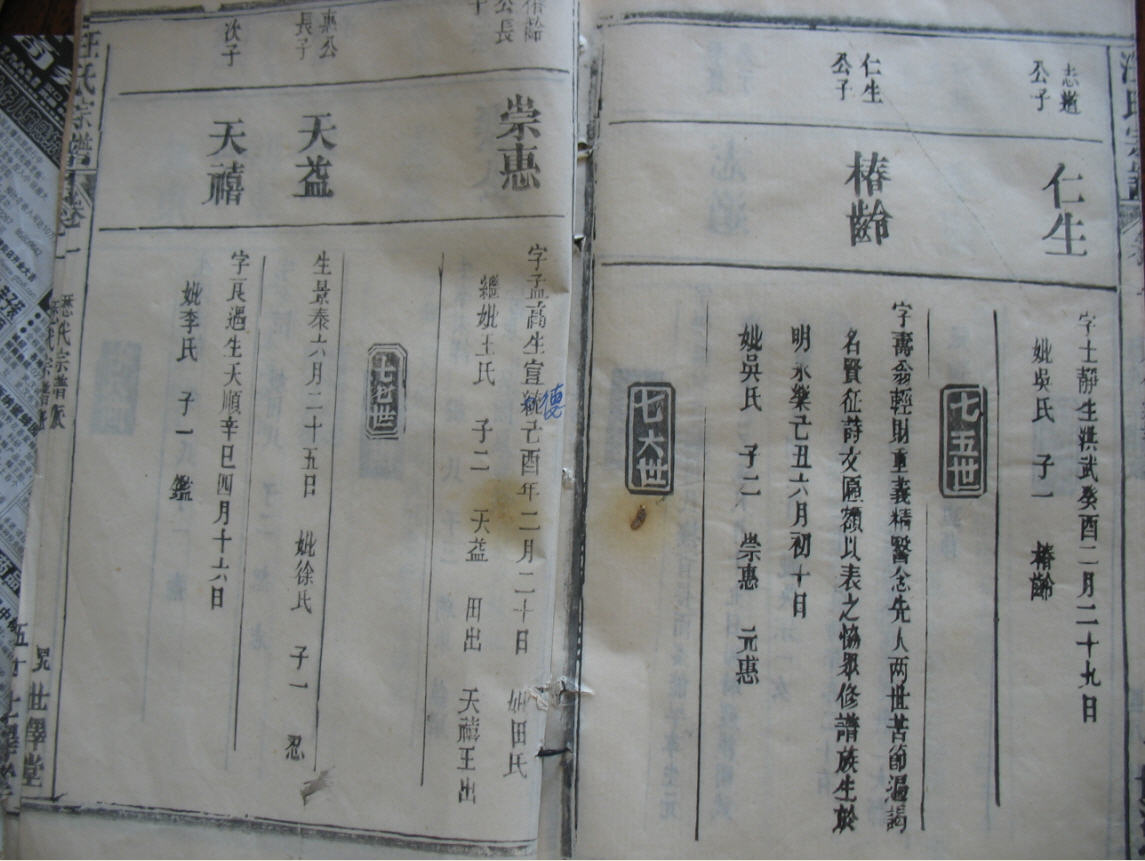 汪氏宗譜
志逍
公子
仁生
字士靜生洪武癸酉二月二十九日
妣吳氏 子一 椿齡
七五世
仁生
公子
椿齡
字壽翁輕財重義精醫念先人两世苦節遍謁
名賢征詩文匾額以表之協眾修譜族生於
明永樂己丑六月初十日
妣吳氏 子二 崇惠 元惠
七六世
椿齡
公長
子
崇惠
字孟高生宣統己酉年二月二十日 妣田氏
德
繼妣王氏 子二 天益 田出 天禧王出
七七世
惠公
長子
天益
生景泰六月二十五日 妣徐氏 子一 忍
次子
天禧
字良遇生天順辛巳四月十六日
妣李氏 子一 鑑
汪氏宗譜 卷一